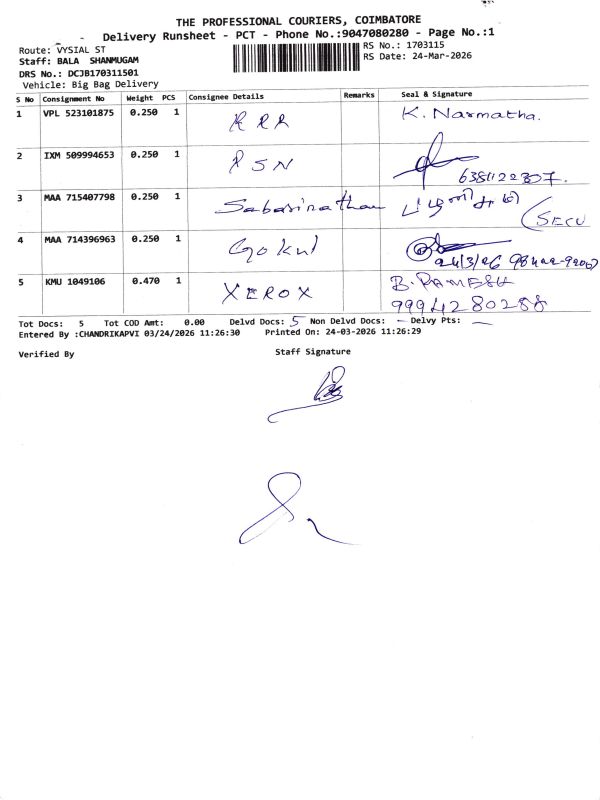 THE PROFESSIONAL COURIERS, COIMBATORE
Delivery Runsheet - PCT - Phone No.:9047080280 - Page No.:1
Route: VYSIAL ST
RS No.: 1703115
Staff: BALA SHANMUGAM
RS Date: 24-Mar-2026
DRS No.: DCJB170311501
Vehicle: Big Bag Delivery
S No Consignment No Weight PCS Consignee Details Remarks Seal & Signature
1 VPL 523101875 0.250 1 RRR K. Narmatha.
2 IXM 509994653 0.250 1 PSN
3 MAA 715407798 0.250 1 Sabarinathan பழனிசாமி (SECU
4 MAA 714396963 0.250 1 Gokul
24/3/26
5 KMU 1049106 0.470 1 XEROX B. RAMESH
9994280288
Tot Docs: 5 Tot COD Amt: 0.00 Delvd Docs: 5 Non Delvd Docs: — Delvy Pts: —
Entered By :CHANDRIKAPVI 03/24/2026 11:26:30 Printed On: 24-03-2026 11:26:29
Verified By Staff Signature